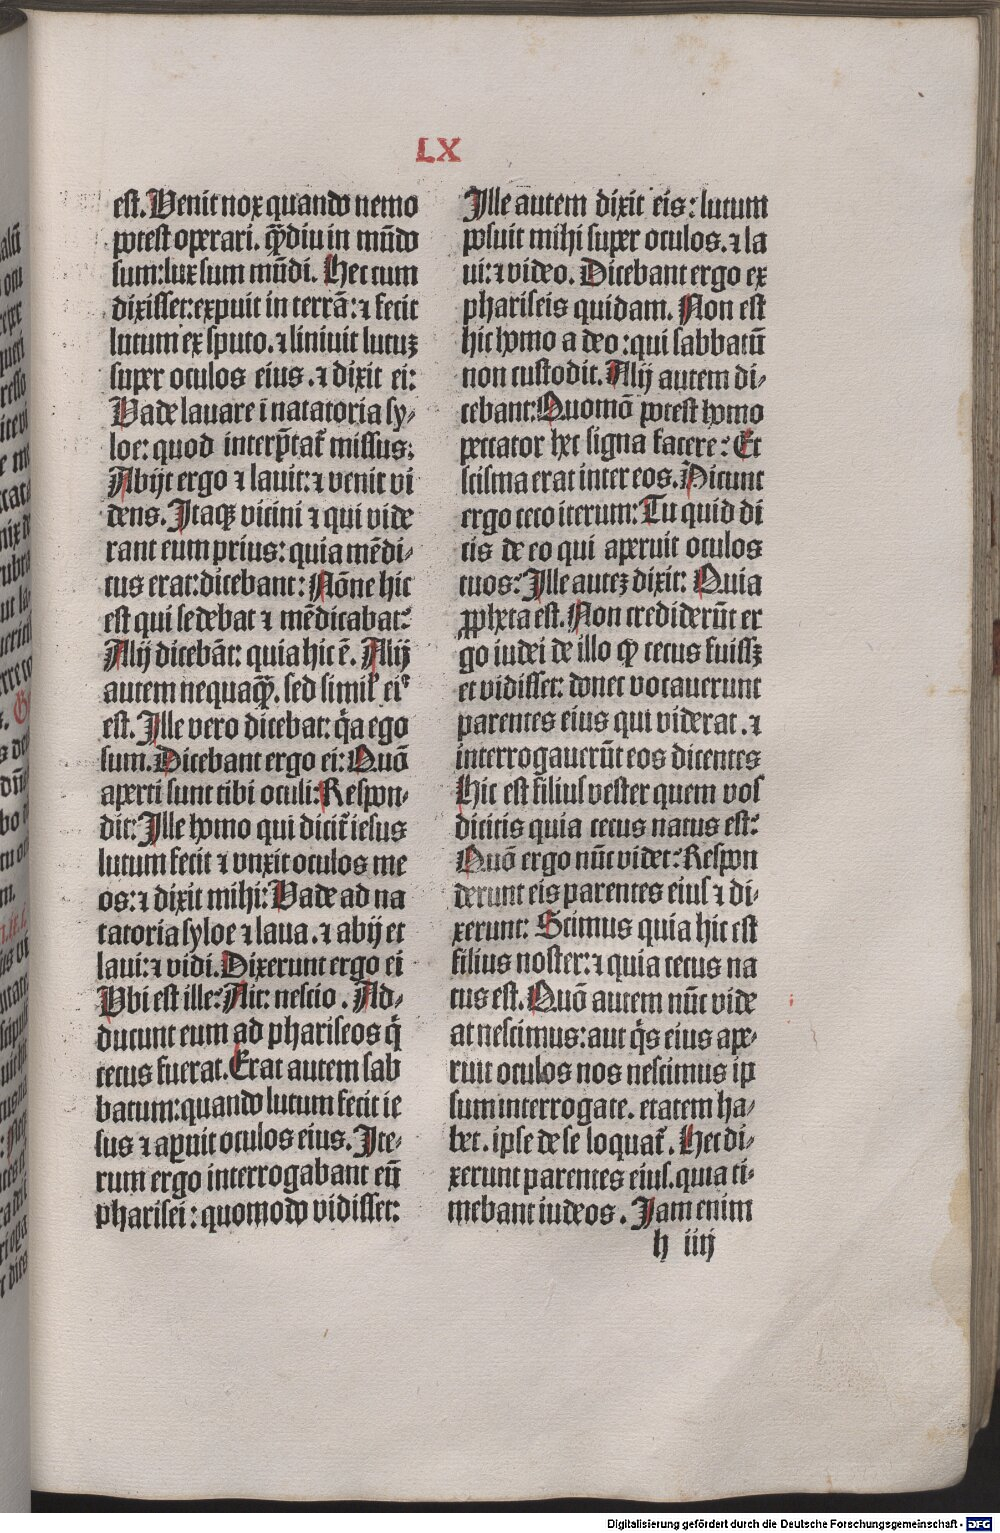 LX
est. Venit nox quando nemo
potest operari. q̄diu in mūdo
sum: lux sum mūdi. Hec cum
dixisset: expuit in terrā: ⁊ fecit
lutum ex sputo. ⁊ liniuit lutuꝫ
super oculos eius. ⁊ dixit ei:
Vade lauare ī natatoria sy⸗
loe: quod interp̄tat᷑ missus:
Abijt ergo ⁊ lauit: ⁊ venit vi
dens. Itaqꝫ vicini ⁊ qui vide
rant eum prius: quia mēdi⸗
cus erat: dicebant: Nōne hic
est qui sedebat ⁊ mēdicabat:
Alij dicebāt: quia hic ē. Alij
autem nequaq̄. sed simil' eiꝰ
est. Ille vero dicebat: q̄a ego
sum. Dicebant ergo ei: Quō
aperti sunt tibi oculi: Respon⸗
dit: Ille homo qui dicit᷑ iesus
lutum fecit ⁊ vnxit oculos me
os: ⁊ dixit mihi: Vade ad na
tatoria syloe ⁊ laua. ⁊ abij et
laui: ⁊ vidi. Dixerunt ergo ei
Vbi est ille: Ait: nescio. Ad⸗
ducunt eum ad phariseos q̄
cecus fuerat. Erat autem sab
batum: quando lutum fecit ie
sus ⁊ aꝑuit oculos eius. Ite⸗
rum ergo interrogabant eū
pharisei: quomodo vidisset:
Ille autem dixit eis: lutum
posuit mihi super oculos. ⁊ la
ui: ⁊ video. Dicebant ergo ex
phariseis quidam. Non est
hic homo a deo: qui sabbatū
non custodit. Alij autem di⸗
cebant: Quomō potest homo
peccator hec signa facere: Et
scisma erat inter eos. Dicunt
ergo ceco iterum: Tu quid di
cis de eo qui aperuit oculos
tuos: Ille auteꝫ dixit: Quia
ꝓpheta est. Non crediderūt er
go iudei de illo ꝙ cecus fuissꝫ
et vidisset: donec vocauerunt
parentes eius qui viderat. ⁊
interrogauerūt eos dicentes
Hic est filius vester quem vos
dicitis quia cecus natus est:
Quō ergo nūc videt: Respon
derunt eis parentes eius ⁊ di⸗
xerunt: Scimus quia hic est
filius noster: ⁊ quia cecus na
tus est. Quō autem nūc vide
at nescimus: aut q̄s eius ape⸗
ruit oculos nos nescimus ip
sum interrogate. etatem ha⸗
bet. ipse de se loquat᷑. Hec di⸗
xerunt parentes eius. quia ti⸗
mebant iudeos. Iam enim
h iiij
Digitalisierung gefördert durch die Deutsche Forschungsgemeinschaft - DFG